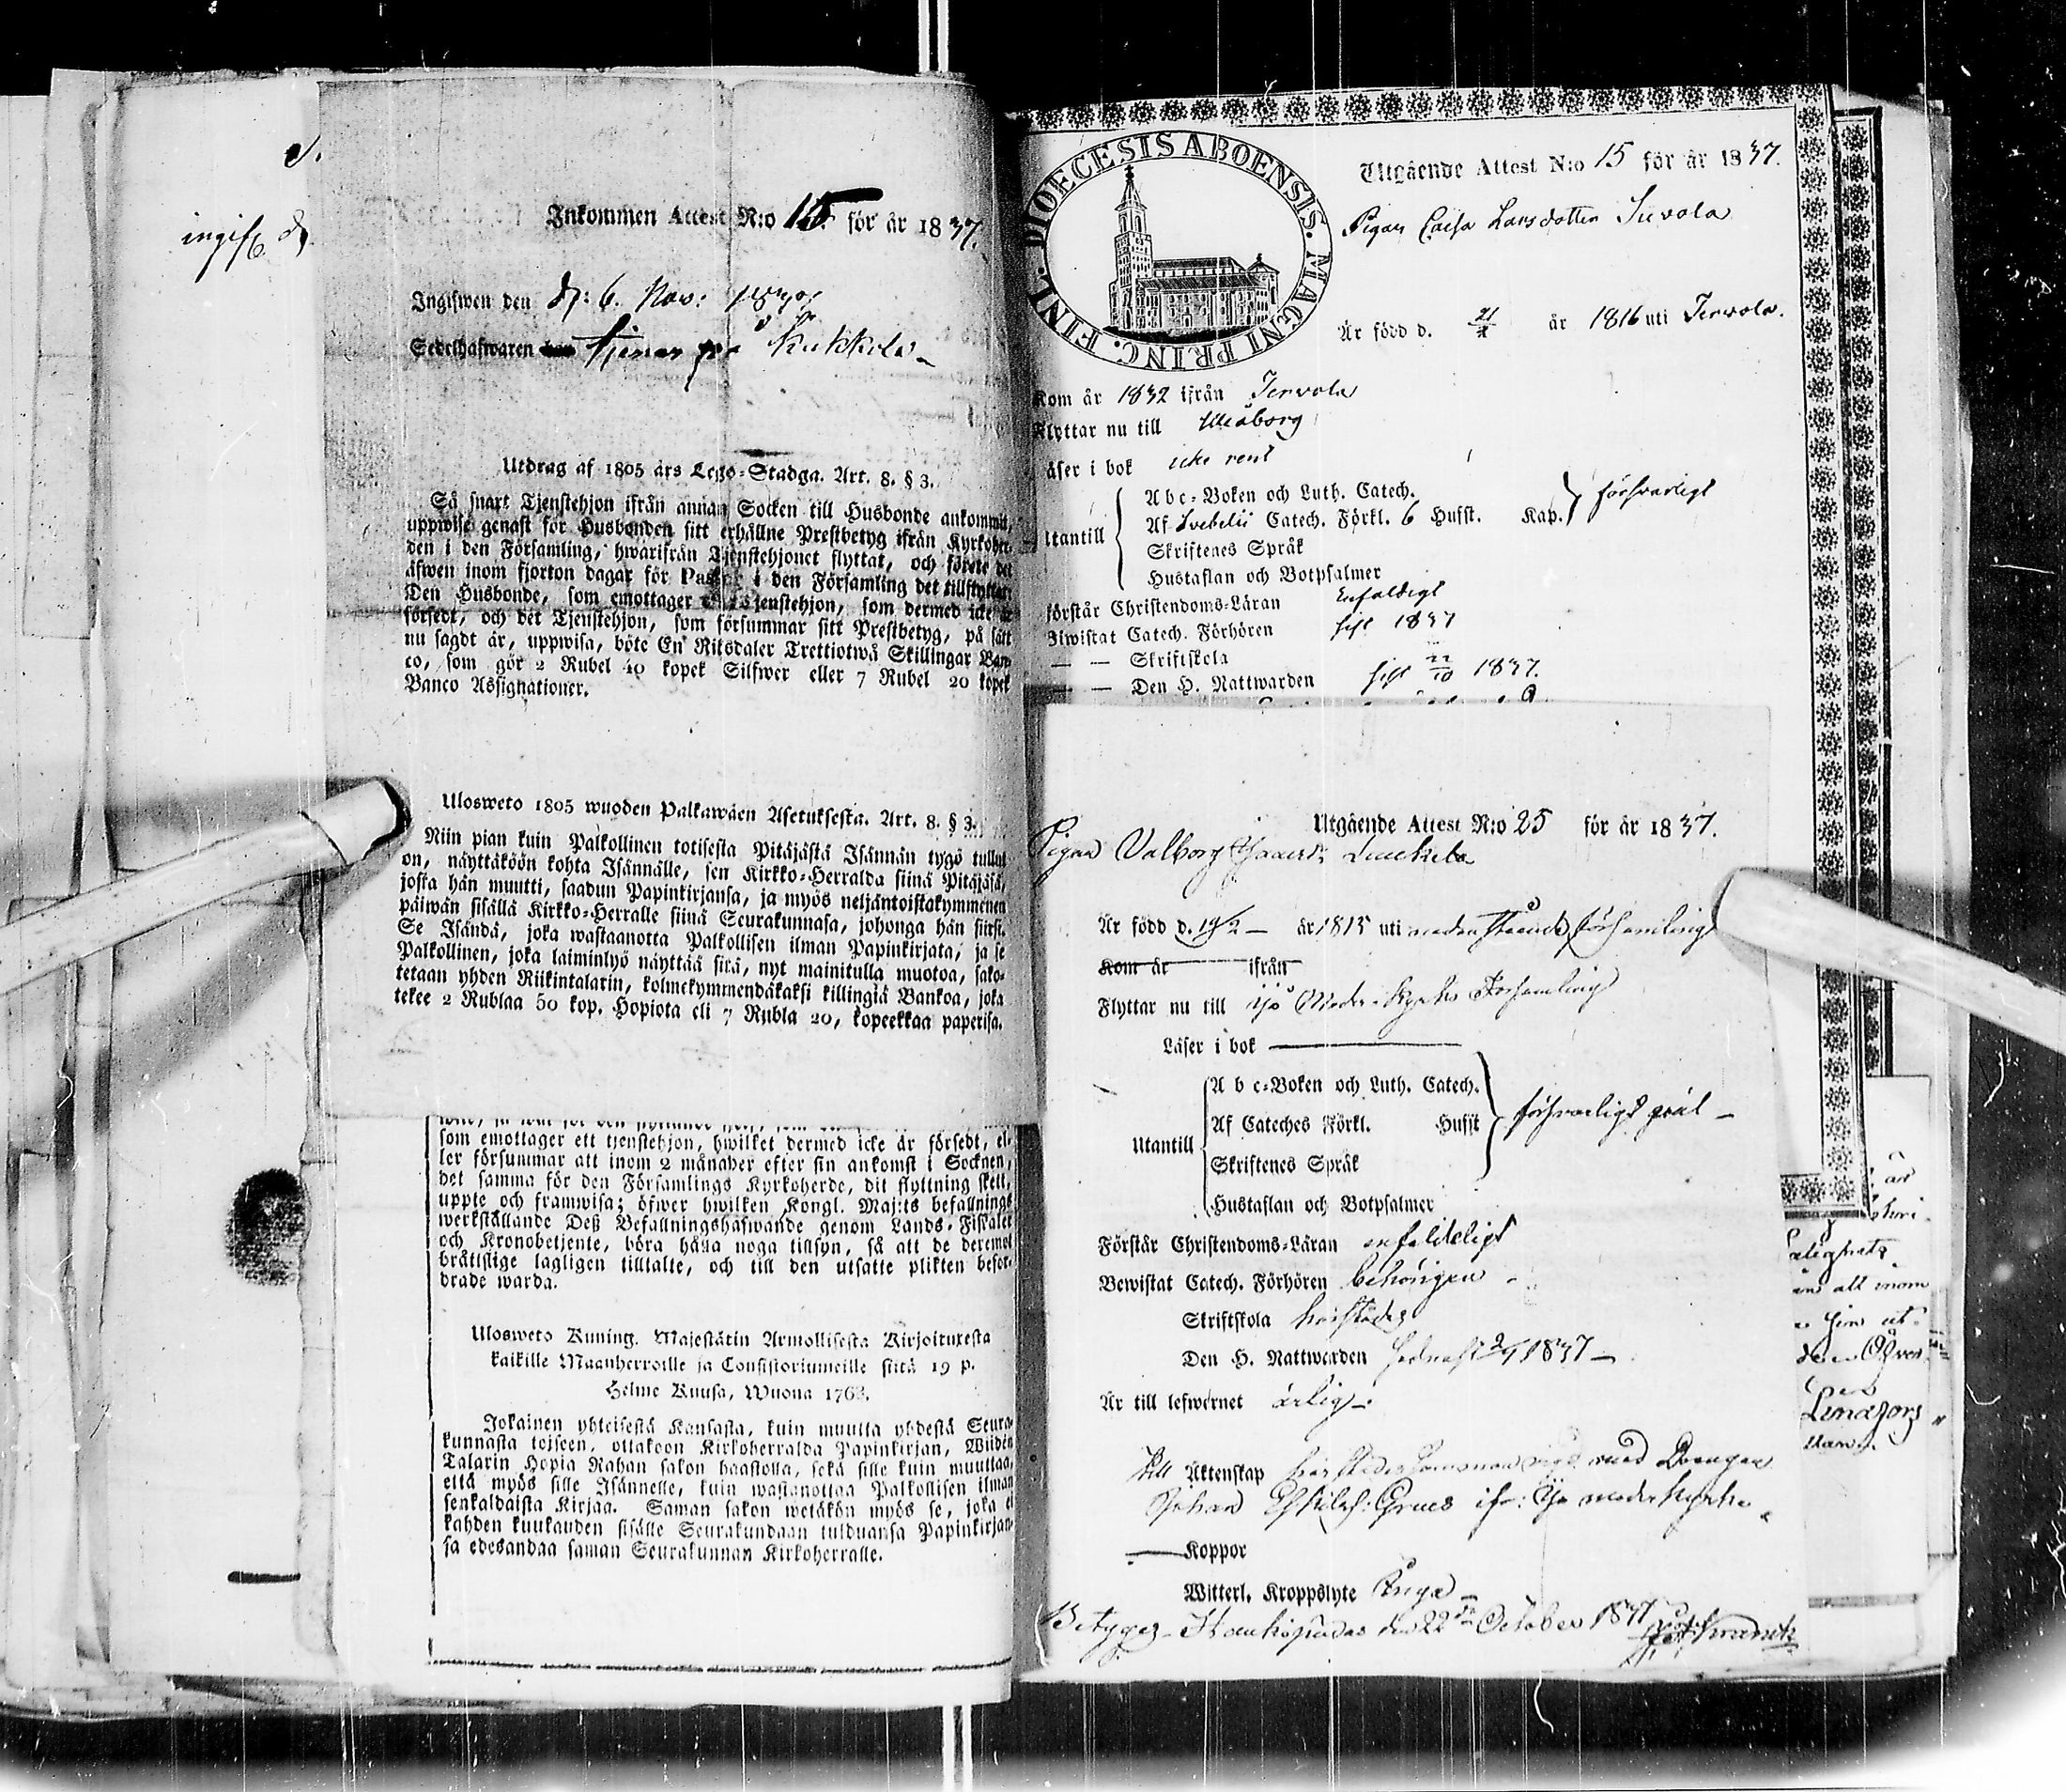 ingifv. d.
Inkommen Attest N:o 15. för år 1837.
Ingifwen den d: 6. Nov: 1837
Sedelhafwaren tjenar på Kukkola
Utdrag af 1805 års Lego-Stadga. Art. 8. § 3.
Så snart Tjenstehjon ifrån annan Socken till Husbonde ankommit,
uppwise genast för Husbonden sitt erhållne Prestbetyg ifrån Kyrkoher-
den i den Församling, hwarifrån Tjenstehjonet flyttat, och förete det
äfwen inom fjorton dagar för Pastor i den Församling det tillflyttar.
Den Husbonde, som emottager Tjenstehjon, som dermed icke är
försedt, och det Tjenstehjon, som försummar sitt Prestbetyg, på sätt
nu sagdt är, uppwisa, böte En Riksdaler Trettiotwå Skillingar Ban-
co, som gör 2 Rubel 40 kopek Silfwer eller 7 Rubel 20 kopek
Banco Assignationer.
Ulosweto 1805 wuoden Palkawäen Asetuksesta. Art. 8. § 3.
Niin pian kuin Palkollinen toisesta Pitäjästä Isännän tygö tullut
on, näyttäköön kohta Isännälle, sen Kirkko-Herralda siinä Pitäjäsä,
josta hän muutti, saadun Papinkirjansa, ja myös neljäntoistakymmenen
päiwän sisällä Kirkko-Herralle siinä Seurakunnasa, johonga hän siirsi.
Se Isändä, joka wastaanotta Palkollisen ilman Papinkirjata, ja se
Palkollinen, joka laiminlyö näyttää sitä, nyt mainitulla muotoa, sako-
tetaan yhden Riikintalarin, kolmekymmendäkaksi killingiä Bankoa, joka
tekee 2 Rublaa 50 kop. Hopiota eli 7 Rubla 20, kopeekkaa paperisa.
som emottager ett tjenstehjon, hwilket dermed icke är försedt, el-
ler försummar att inom 2 månader efter sin ankomst i Socknen,
det samma för den Församlings Kyrkoherde, dit flyttning skett,
uppte och framwisa; öfwer hwilken Kongl. Maj:ts befallnings
werkställande Deß Befallningshafwande genom Lands-Fiskaler
och Kronobetjente, böra hålla noga tillsyn, så att de deremot
bråtslige lagligen tilltalte, och till den utsatte plikten befor-
drade warda.
Ulosweto Kuning. Majestätin Armollisesta Kirjoituxesta
kaikille Maanherroille ja Consistoriumeille siitä 19 p.
Helme Kuusa, Wuona 1763.
Jokainen yhteisestä Kansasta, kuin muutta yhdestä Seura-
kunnasta toiseen, ottakoon Kirkoherralda Papinkirjan, Wiiden
Talarin Hopia Rahan sakon haastolla, sekä sille kuin muuttaa,
että myös sille Isännelle, kuin wastanottaa Palkollisen ilman
senkaldaista Kirjaa. Saman sakon wetäkön myös se, joka ei
kahden kuukauden sisälle Seurakundaan tulduansa Papinkirjan-
sa edesandaa saman Seurakunnan Kirkoherralle.
DIOECESIS ABOENSIS. MAGNI PRINC. FINL.
Utgående Attest N:o 15 för år 1837.
Pigan Caisa Larsdotter
Är född d. 21 år 1816 uti Terwola.
Kom år 1832 ifrån Terwola
Klyttar nu till Uleåborg
äser i bok icke rent
A b c-Boken och Luth. Catech.
Af Svebelii Catech. Förkl. 6 Hufst. Kap. försvarligt
Utantill
Skriftenes Språk
Hustaflan och Botpsalmer
förstår Christendoms-Läran Enfaldigt
Biwistat Catech. Förhören sist 1837
— — Skriftskola
— — Den H. Nattwarden sist 22/10 1837.
Utgående Attest N:o 25 för år 1837.
Pigan Valborg
Är född d. 19/2 — år 1815 uti församling
Kom år ifrån
Flyttar nu till Ijo Moder-Kyrko Församling
Läser i bok
A b c-Boken och Luth. Catech.
Af Cateches Förkl. Hufst försvarligt
Utantill
Skriftenes Språk
Hustaflan och Botpsalmer
Förstår Christendoms-Läran enfaldeligt
Bewistat Catech. Förhören behörigen
Skriftskola härstädes
Den H. Nattwarden sednast 2/9 1837 —
Är till lefwernet ärlig.
Till Äktenskap härstädes med Drengen
Johan ifr: Ijo moderkyrko
Koppor
Witterl. Kroppslyte Inga —
Betygar Haukipudas den 22 October 1837
att inom